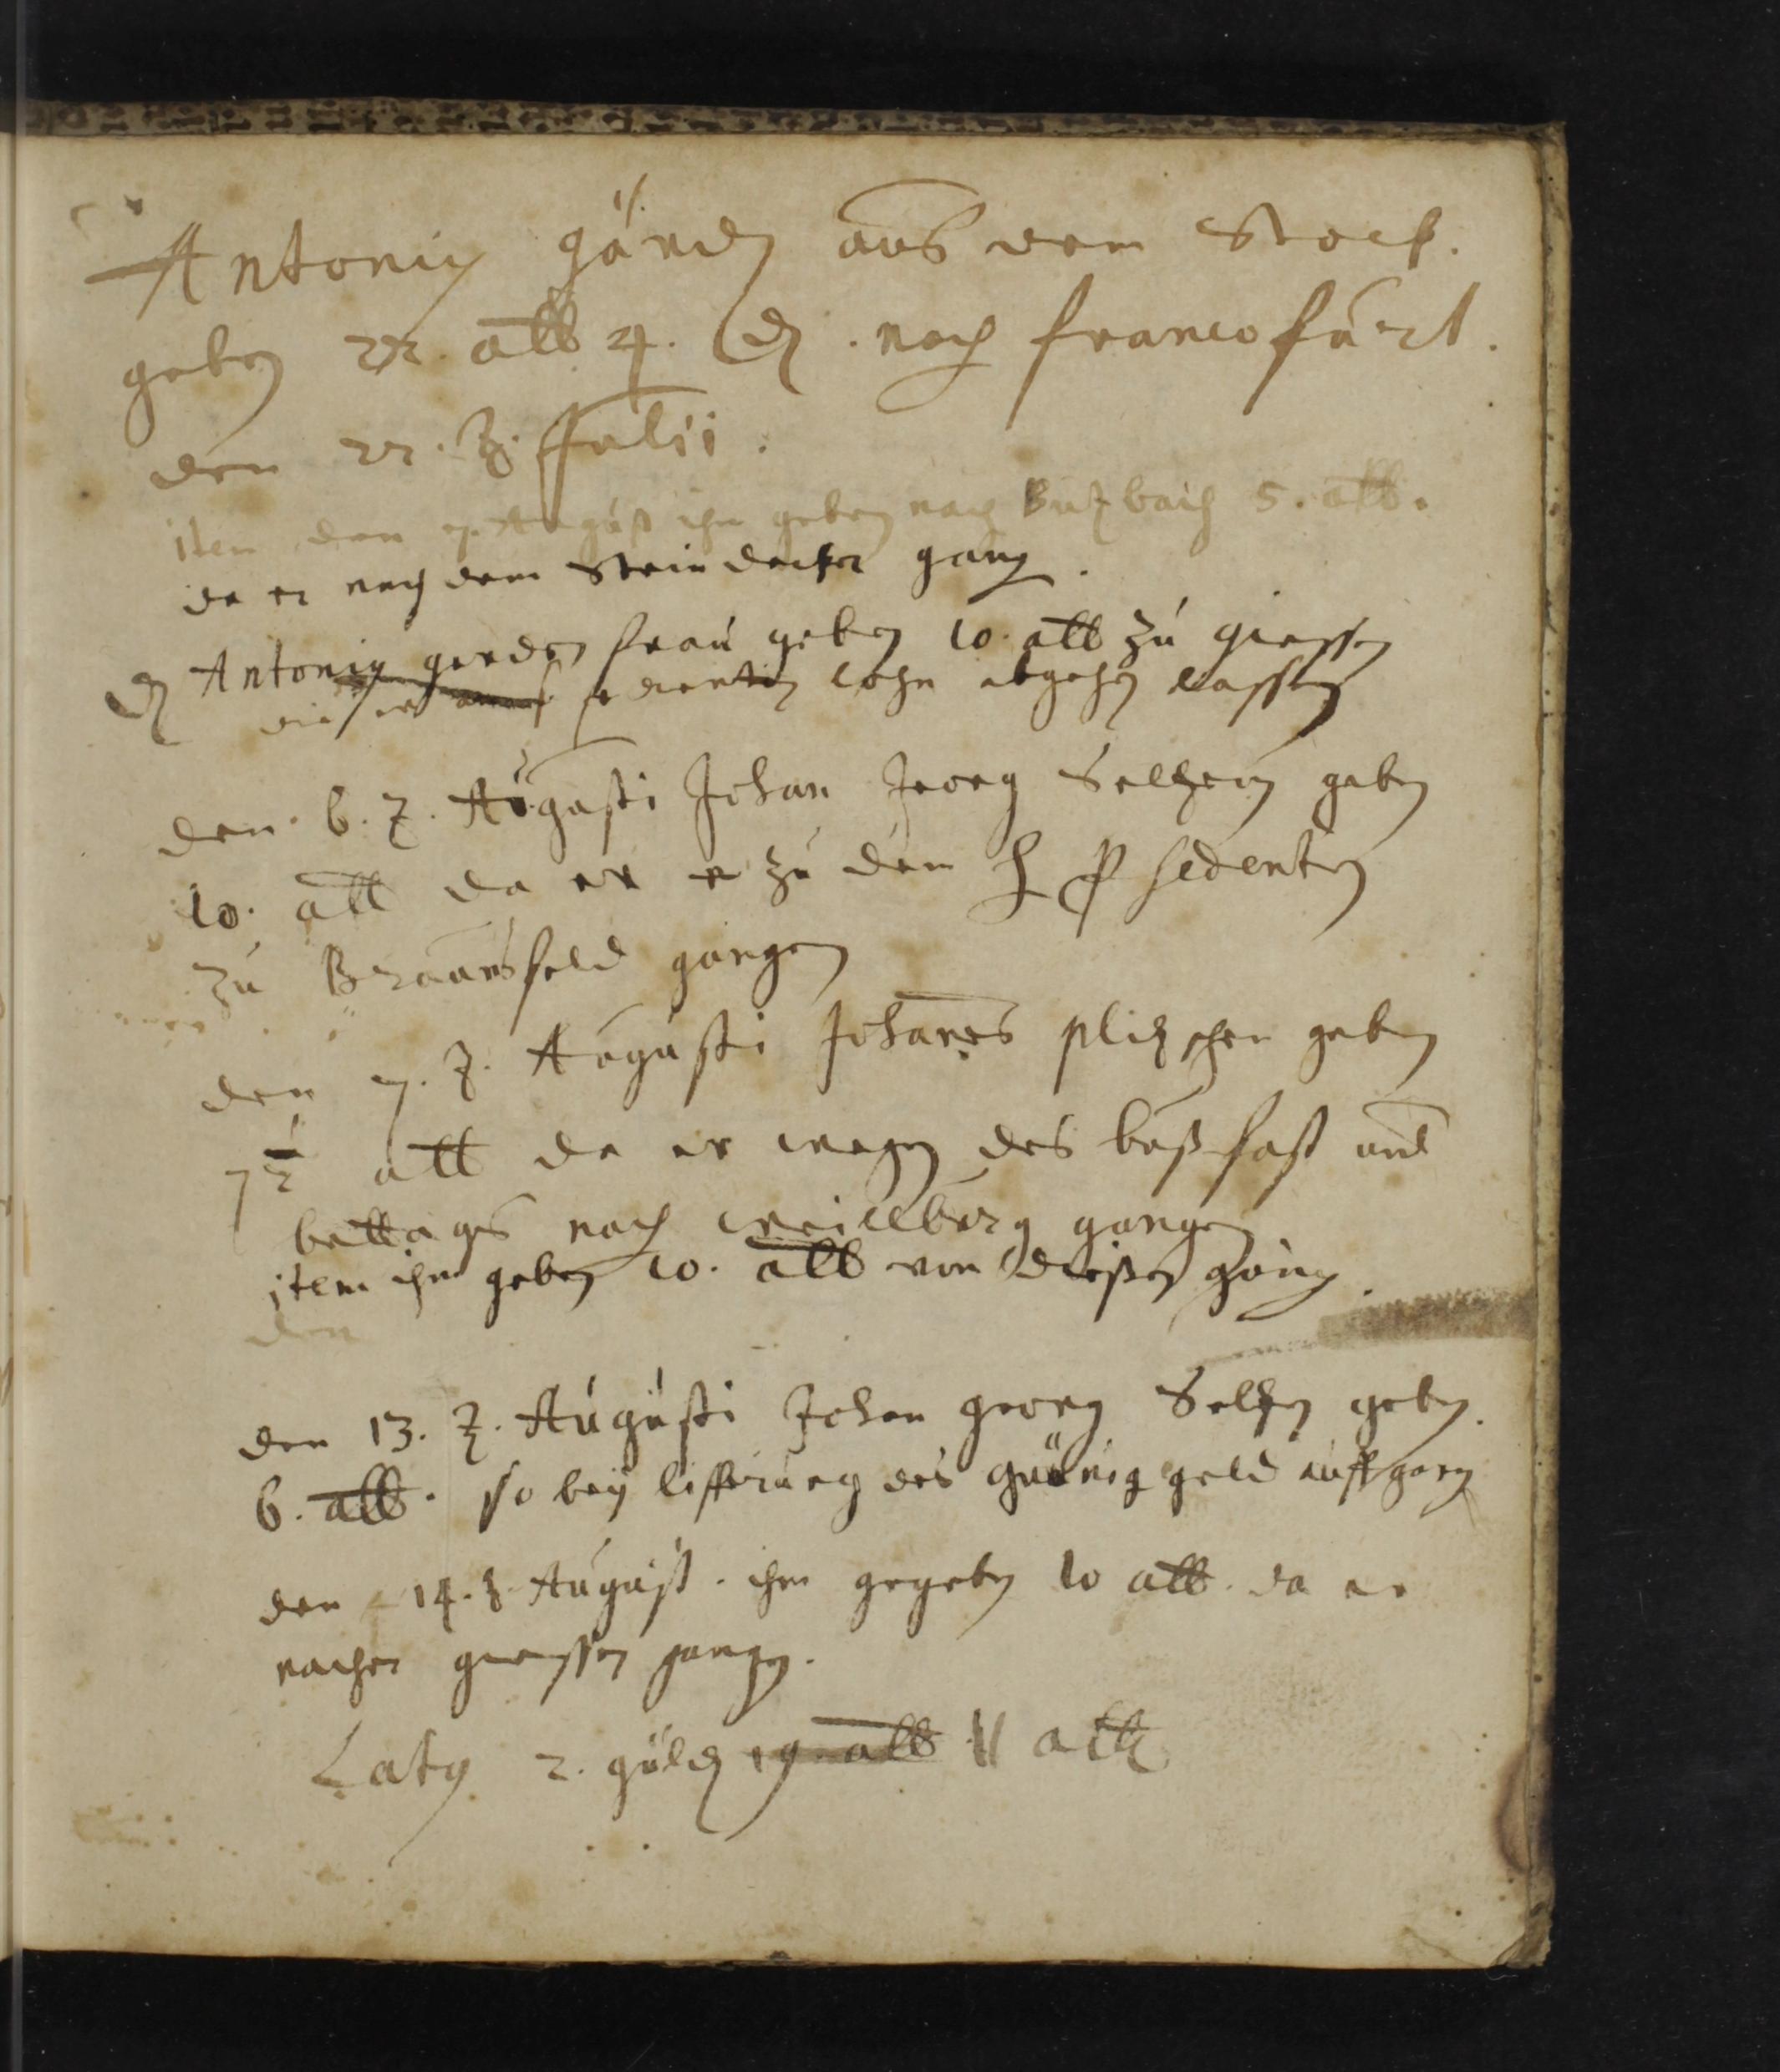 Antonig gärdẽ aus dem Stock.
geben 22. alb 4. ₰. nach francofurt.
den 22. t. Julii.
item den 7. August ihm geben nach Butzbach 5. alb.
da er nach dem Steindecker gang.
Antonig gerden frau geben 10. alb zu giessen
lohn abgehen lassen
den 6. t. Augusti Johan Jeorg Selhern geben
10. alb da er zu dem H Psedenten
zu Braunsfeld gangen
den 7. t. Augusti Johannes plitzschen geben
7½ alb da er wegen des buß fast und
bettags nach weilburg gangen
item ihm geben 10. alb von diesen gang.
den
den 13. t. Augusti Johan georg Selhen geben.
6. alb. so bey lifferung des geld auffgang
den 14. t. August. ihm gegeben 10 alb. da er
nacher giessen gangen.
Latg 2. guldẽ 19. alb 11 alb